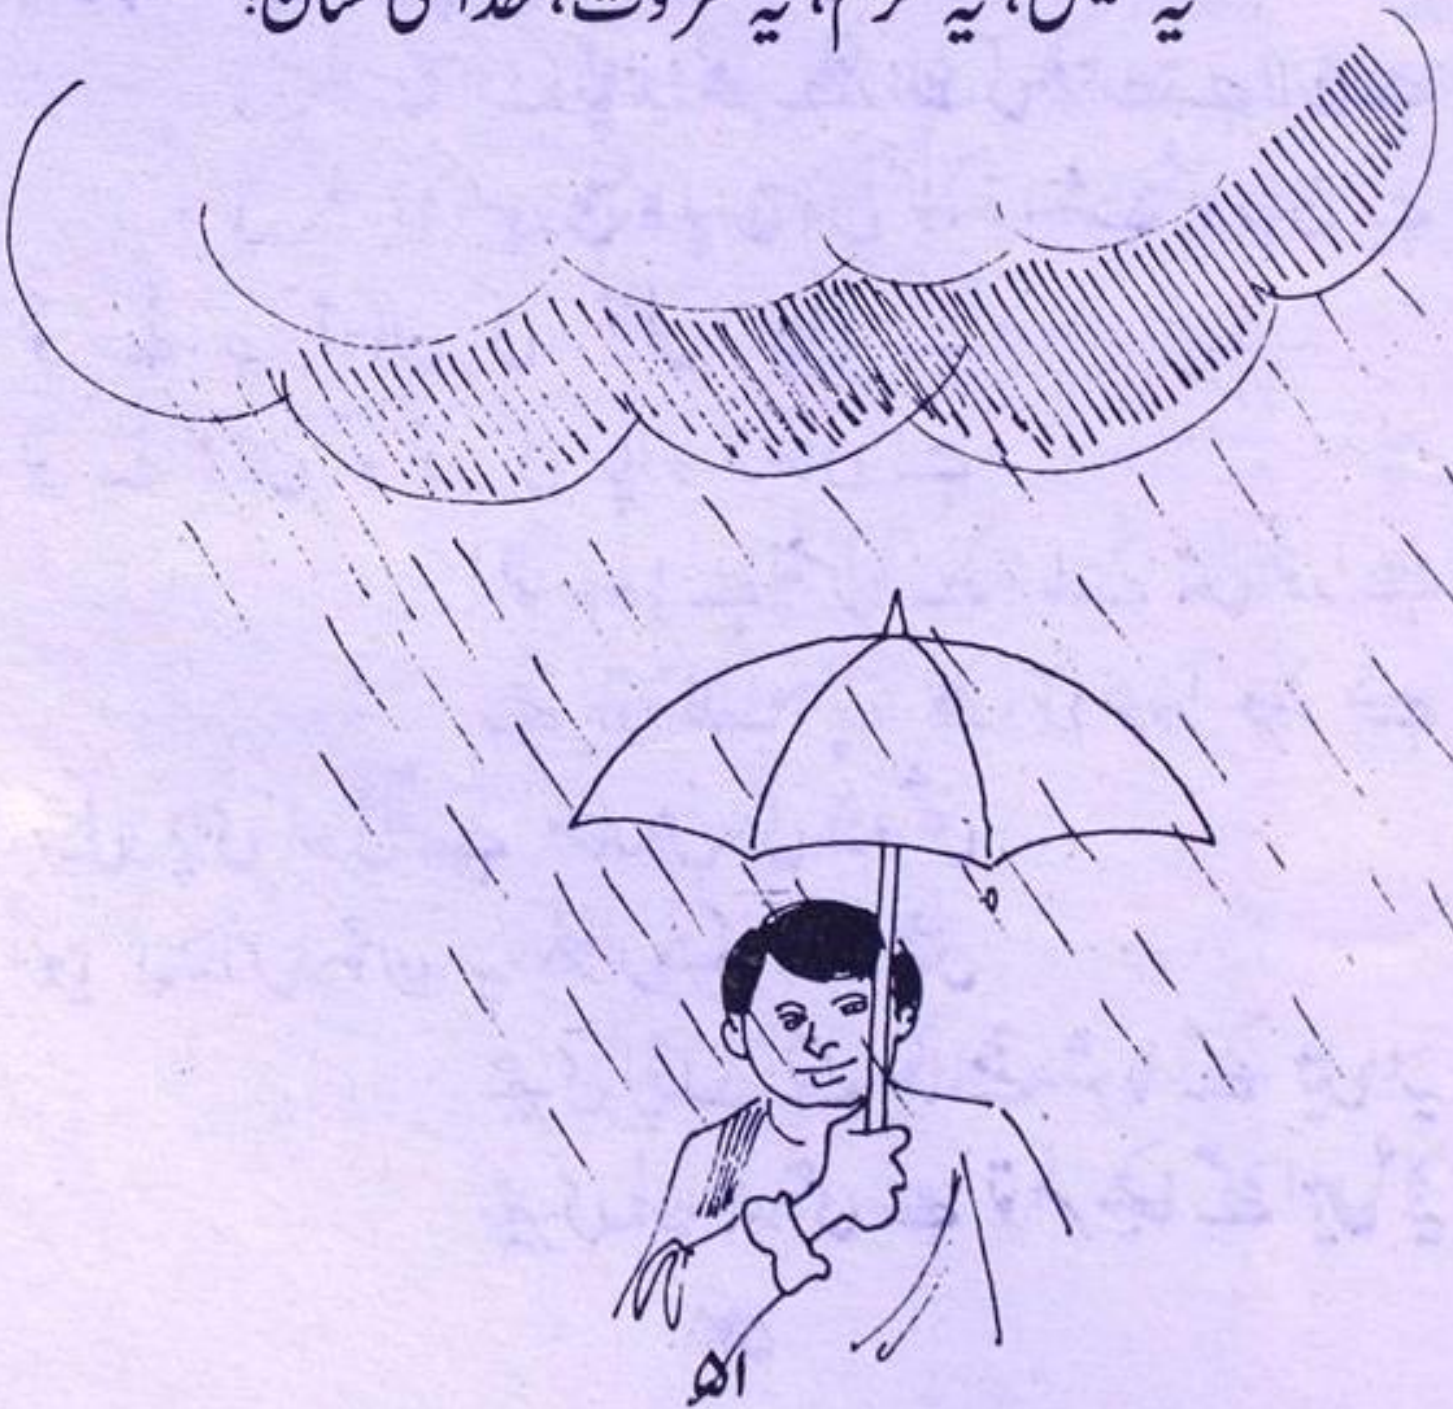 یہ فیض، یہ کرم، یہ مروت، خدا کی شان!
۵۱